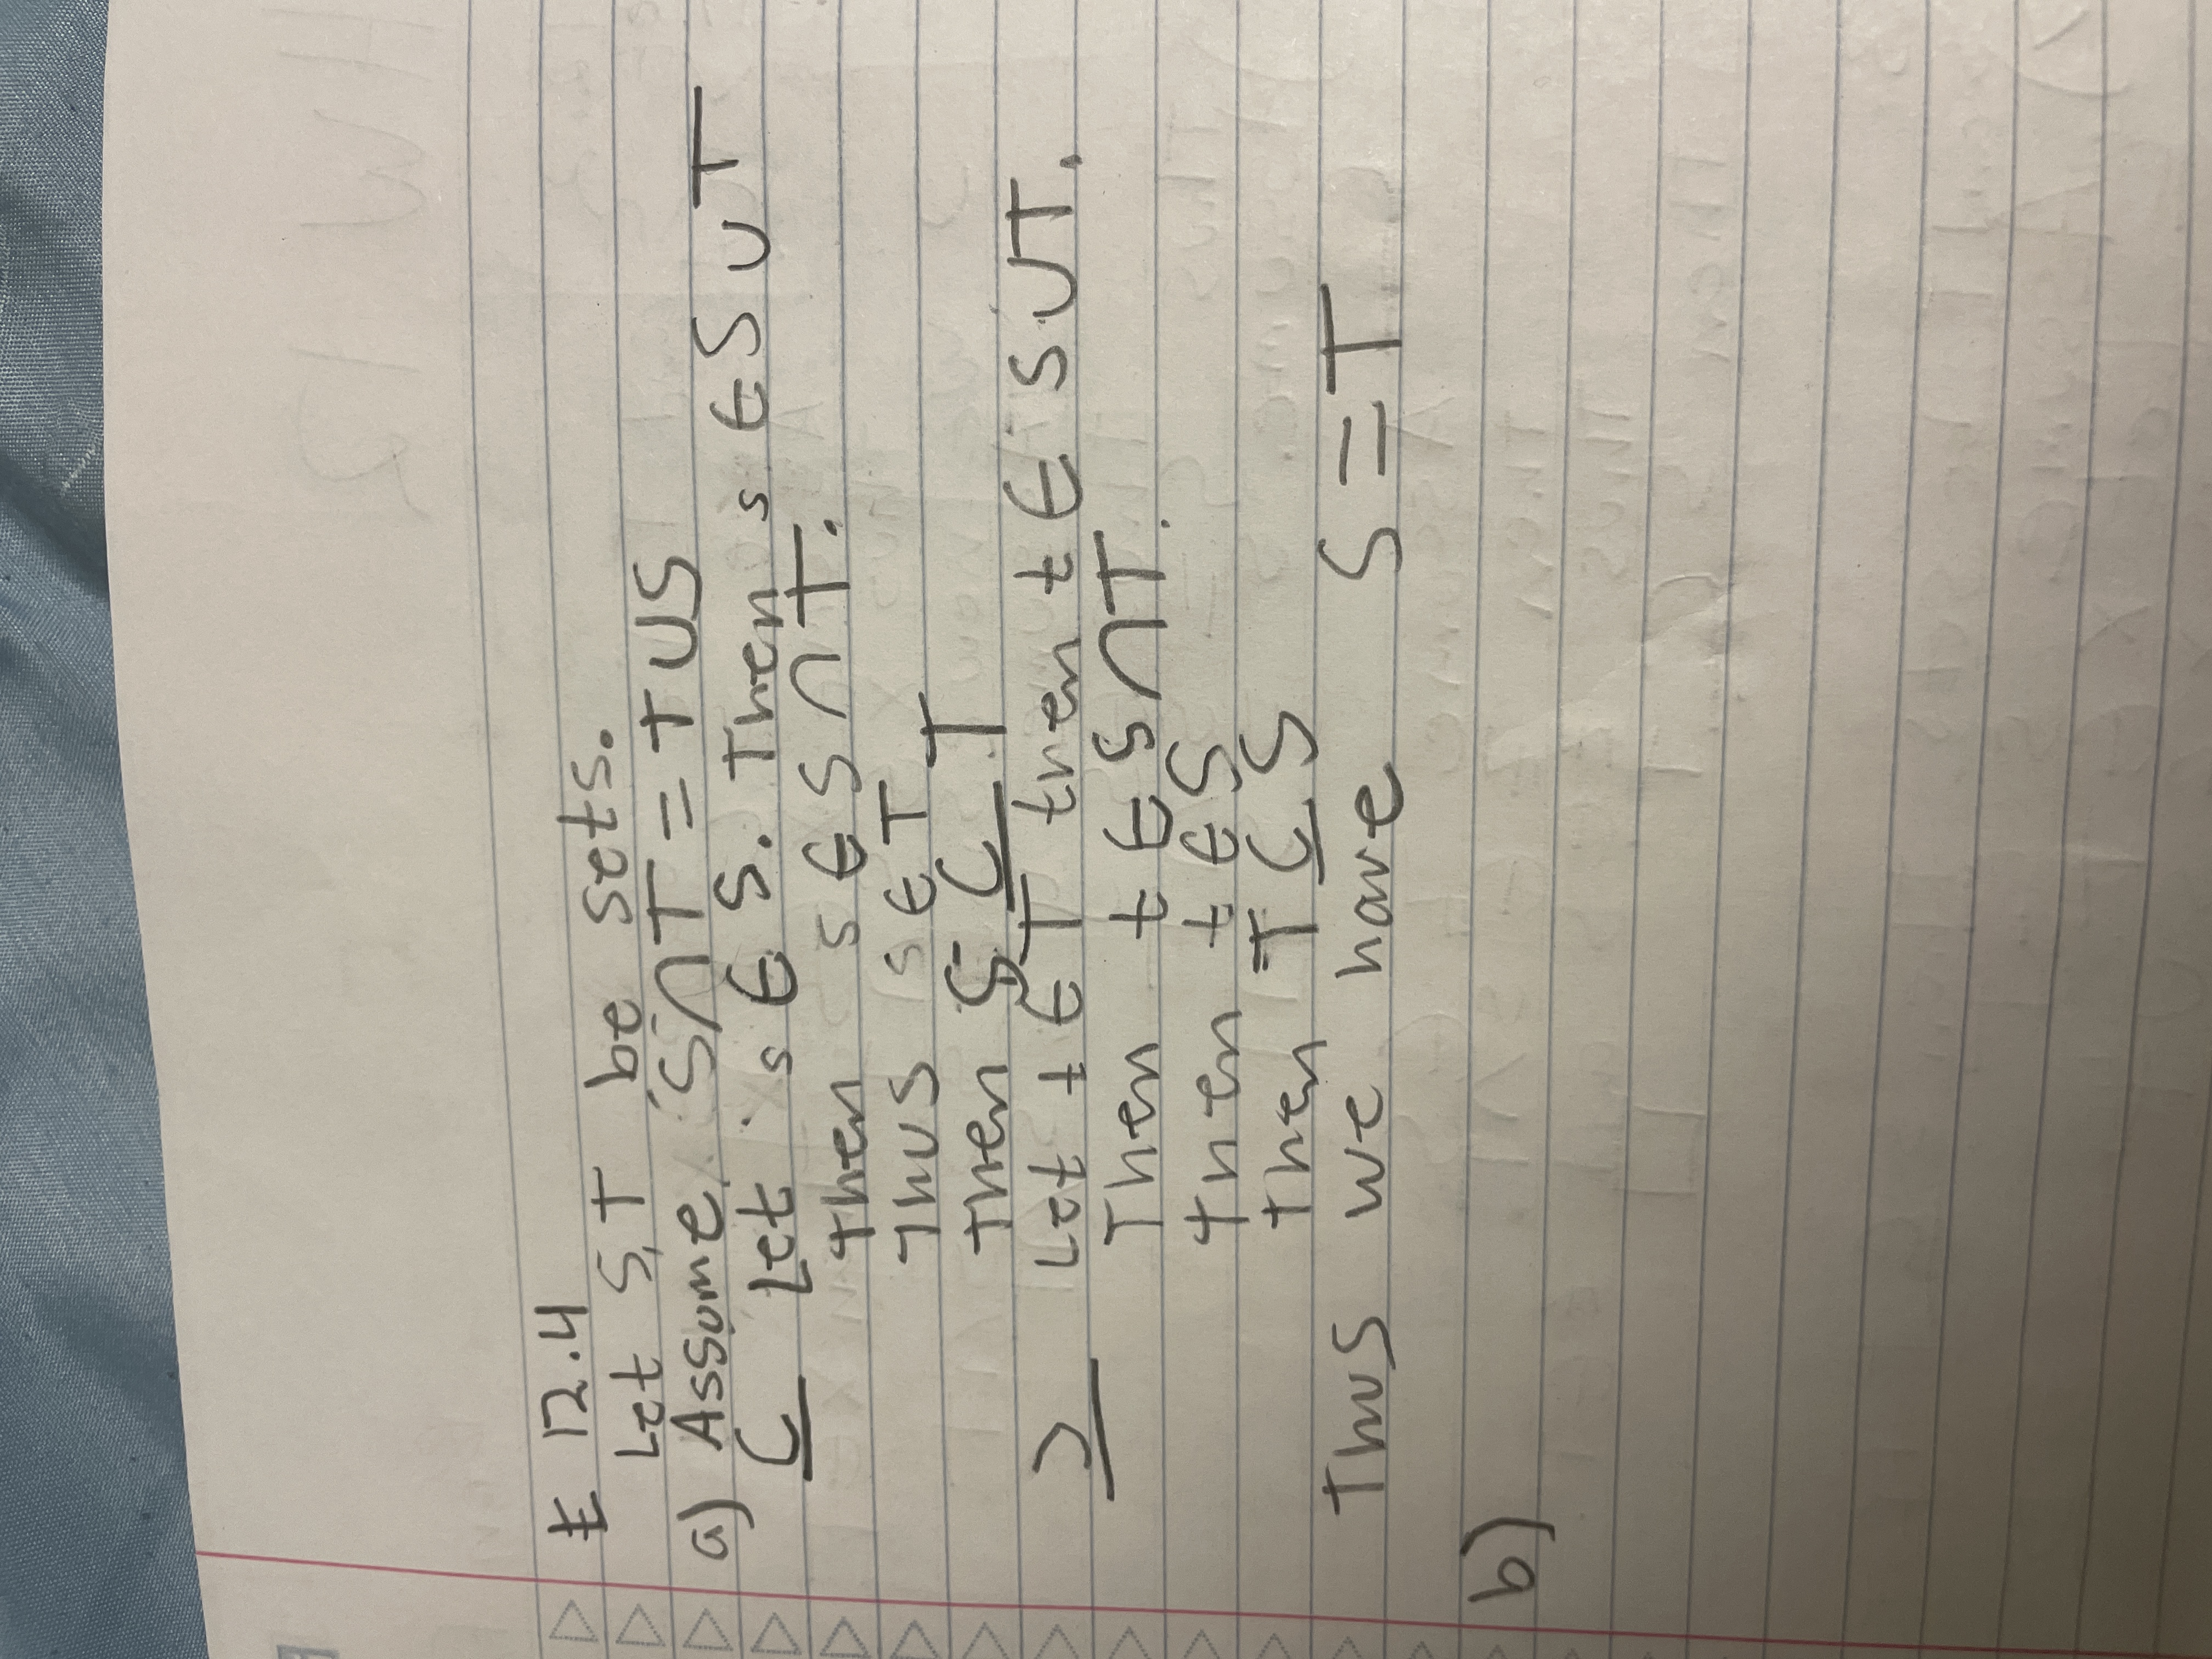 E 12.4
Let S, T be sets.
a) Assume S∩T = T∪S
⊆ Let s ∈ S. Then s ∈ S ∪ T
Then s ∈ S ∩ T.
Thus s ∈ T
Then S ⊆ T
⊇ Let t ∈ T then t ∈ S ∪ T.
Then t ∈ S ∩ T.
Then t ∈ S
Then T ⊆ S
Thus we have S = T
b)